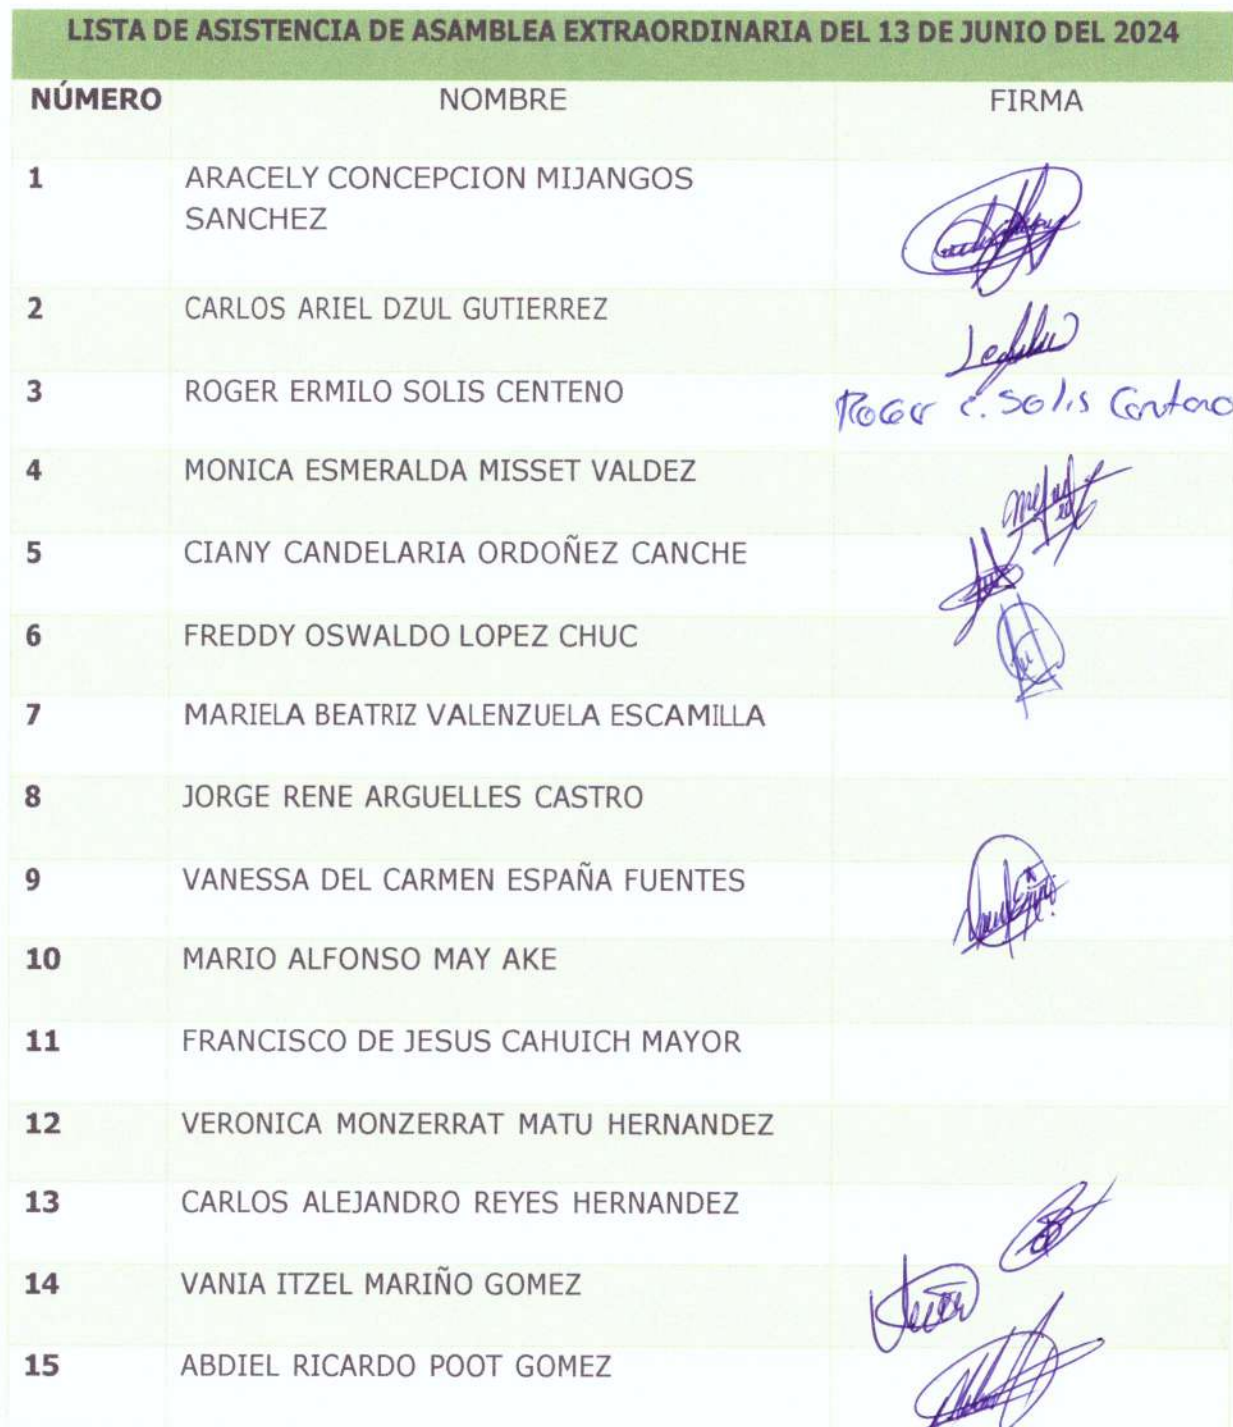 LISTA DE ASISTENCIA DE ASAMBLEA EXTRAORDINARIA DEL 13 DE JUNIO DEL 2024
NÚMERO NOMBRE FIRMA
1 ARACELY CONCEPCION MIJANGOS
SANCHEZ
2 CARLOS ARIEL DZUL GUTIERREZ
3 ROGER ERMILO SOLIS CENTENO Roger E. Solis Centeno
4 MONICA ESMERALDA MISSET VALDEZ
5 CIANY CANDELARIA ORDOÑEZ CANCHE
6 FREDDY OSWALDO LOPEZ CHUC
7 MARIELA BEATRIZ VALENZUELA ESCAMILLA
8 JORGE RENE ARGUELLES CASTRO
9 VANESSA DEL CARMEN ESPAÑA FUENTES
10 MARIO ALFONSO MAY AKE
11 FRANCISCO DE JESUS CAHUICH MAYOR
12 VERONICA MONZERRAT MATU HERNANDEZ
13 CARLOS ALEJANDRO REYES HERNANDEZ
14 VANIA ITZEL MARIÑO GOMEZ
15 ABDIEL RICARDO POOT GOMEZ